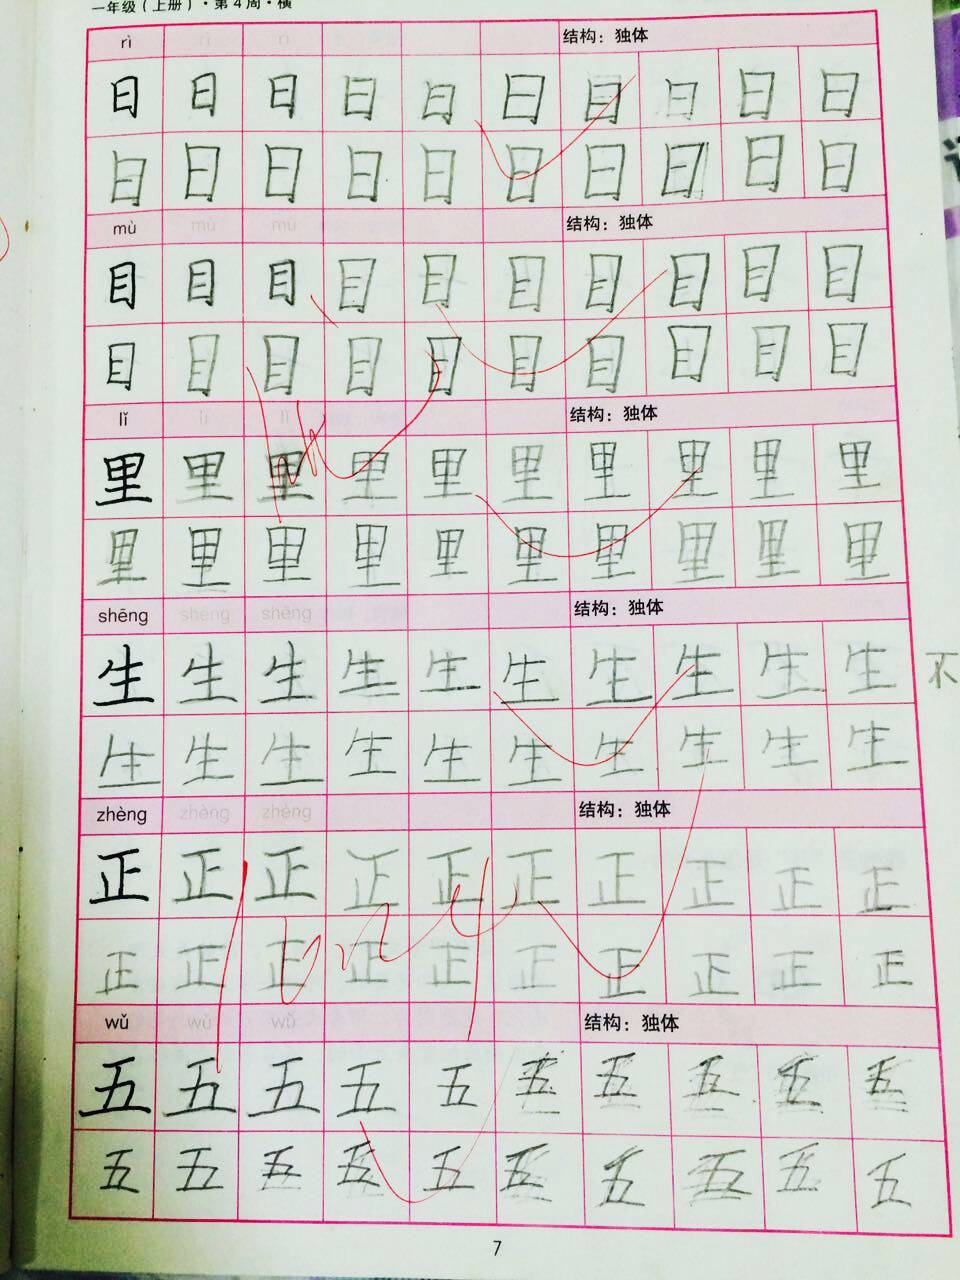 一年级（上册）·第4周·横
rì rì rì 结构：独体
日 日 日 日 日 日 日 日 日 日
日 日 日 日 日 日 日 日 日 日
mù mù mù 结构：独体
目 目 目 目 目 目 目 目 目 目
目 目 目 目 目 目 目 目 目 目
lǐ lǐ lǐ 结构：独体
里 里 里 里 里 里 里 里 里 里
里 里 里 里 里 里 里 里 里 里
shēng shēng shēng 结构：独体
生 生 生 生 生 生 生 生 生 生
不
生 生 生 生 生 生 生 生 生 生
zhèng zhèng zhèng 结构：独体
正 正 正 正 正 正 正 正 正 正
正 正 正 正 正 正 正 正 正 正
wǔ wǔ wǔ 结构：独体
五 五 五 五 五 五 五 五 五 五
五 五 五 五 五 五 五 五 五 五
7